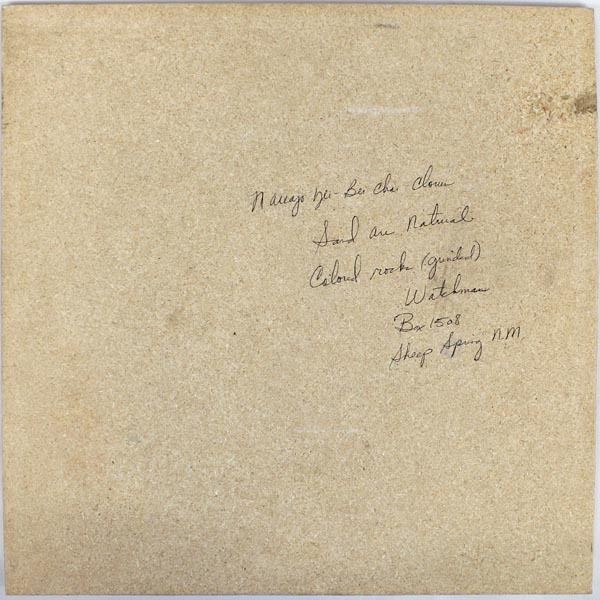 Navajo Yei-Bei Chai Clown
Sand are Natural
Colored rocks (grinded)
Watchman
Box 1508
Sheep Spring N.M.